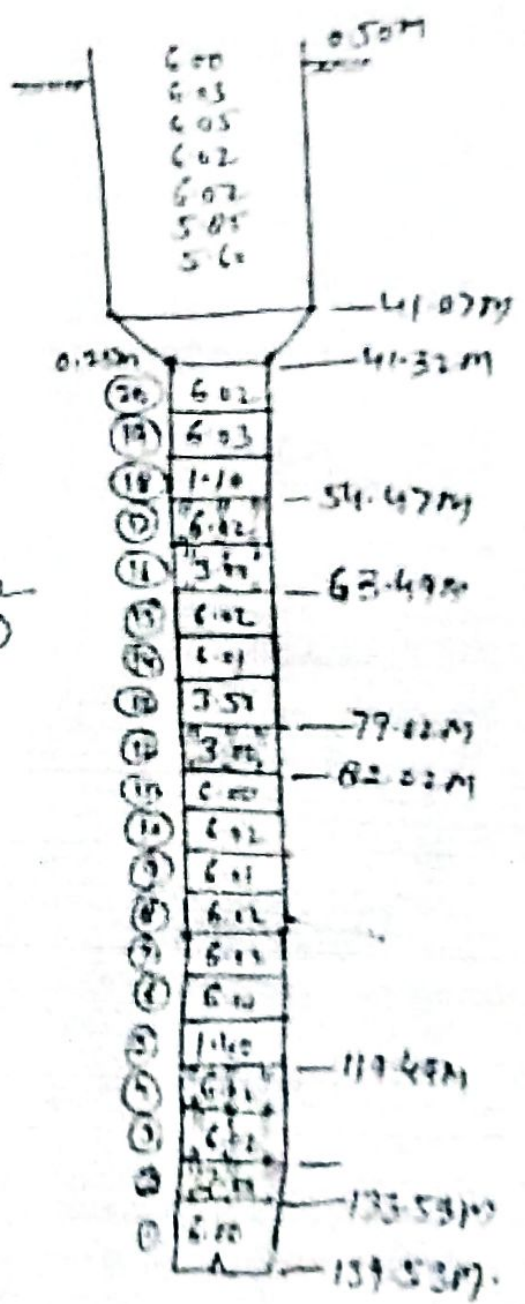 0.50M
6.00
6.03
6.05
6.02
6.02
5.85
41.07M
0.25M
41.32M
20 6.02
19 6.03
18 1.10
54.47M
17 6.02
16
63.49M
15 6.02
14 6.01
13
79.02M
12 3.00
82.02M
11 6.00
10 6.02
9 6.01
8 6.02
7 6.03
6 6.00
5 1.40
119.49M
4
3 6.02
133.53M
1 6.00
139.53M.